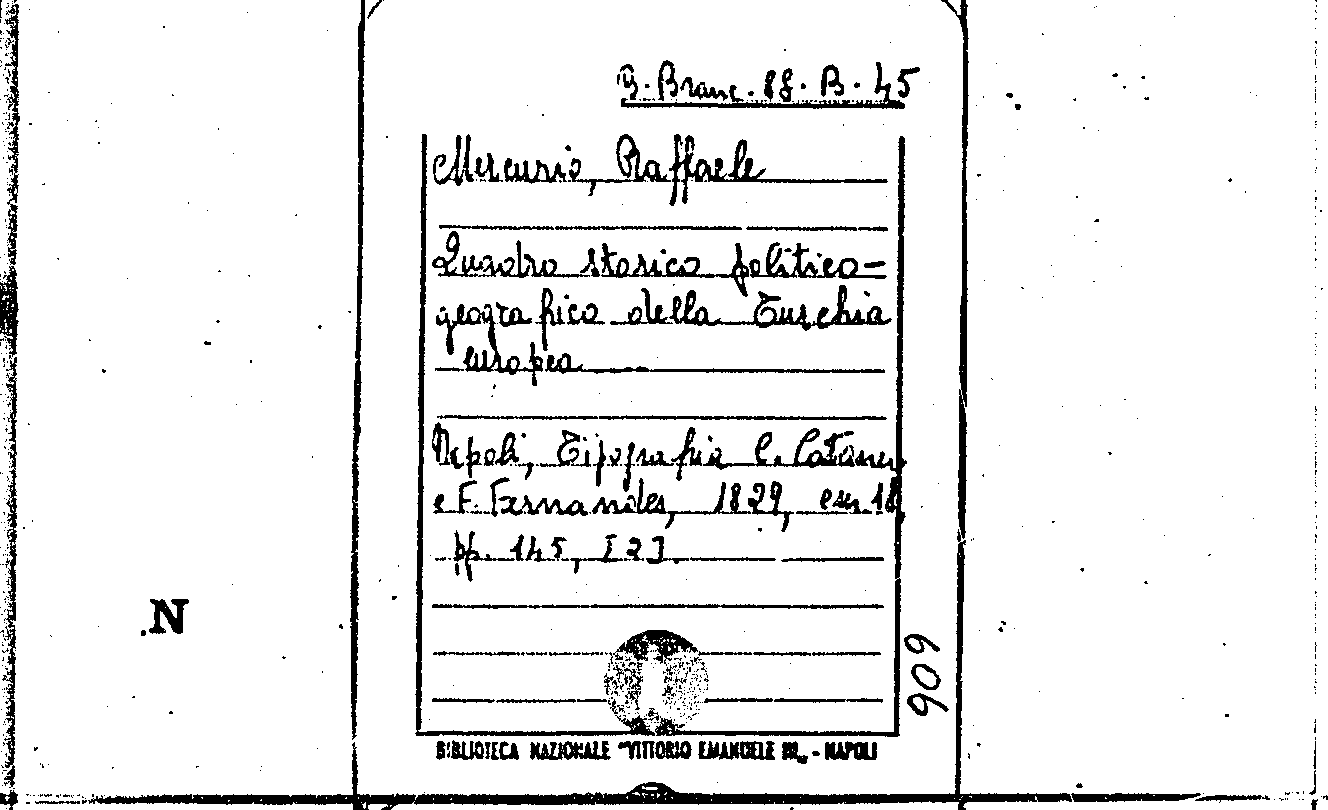 B. Branc. 88. B. 45
Mercurio, Raffaele
Quadro storico politico-
geografico della Turchia
europea
Napoli, Tipografia C. Cataneo
e F. Fernandes, 1829, cm. 18,
pp. 145, [2].
N
909
BIBLIOTECA NAZIONALE "VITTORIO EMANUELE III„ - NAPOLI